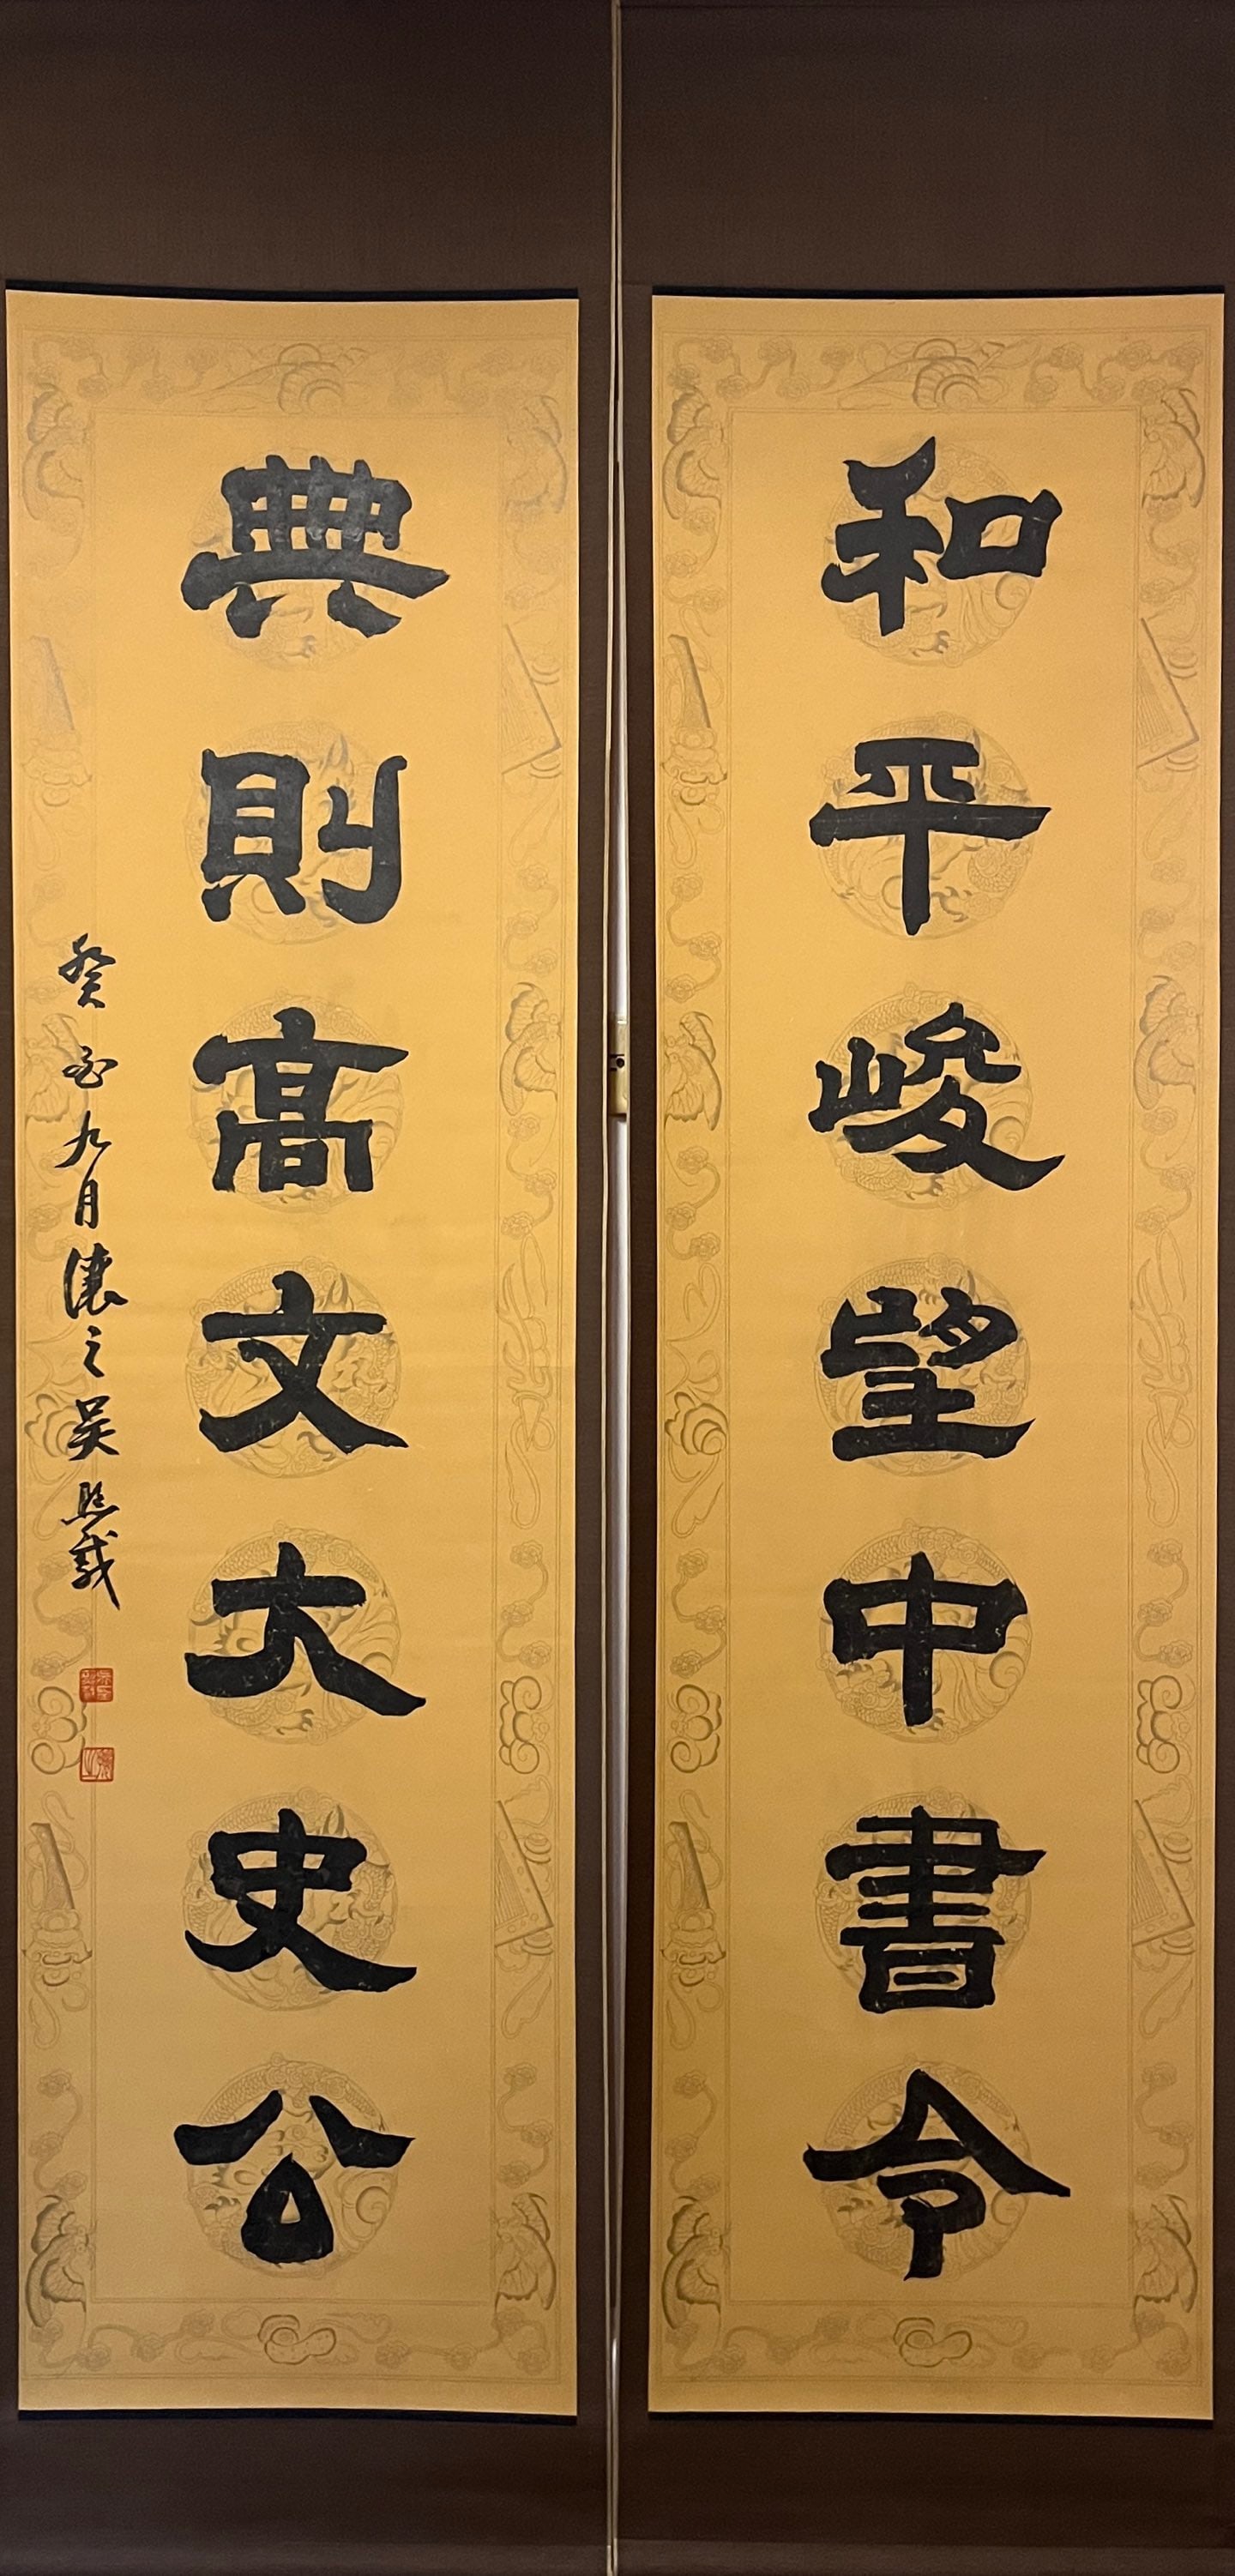 和平峻望中書令
典則高文大史公
癸亥九月讓之吳熙載